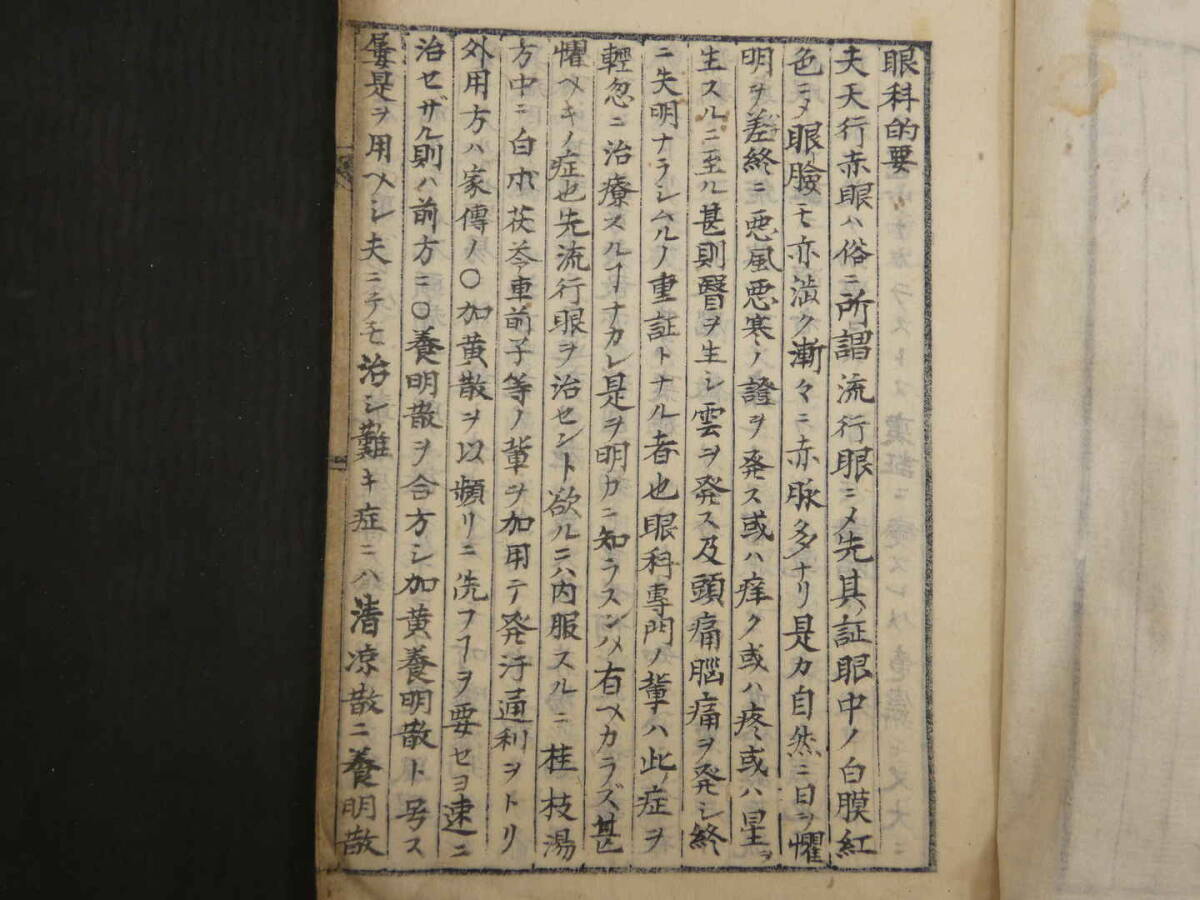 眼科的要
夫天行赤眼ハ俗ニ所謂流行眼ニ〆先其証眼中ノ白膜紅
色ニ〆眼瞼モ亦渋ク漸々ニ赤脉多ナリ是カ自然ニ日ヲ懼
明ヲ羞終ニ悪風悪寒ノ證ヲ発ス或ハ痒ク或ハ疼或ハ星ヲ
生スルニ至ル甚則翳ヲ生シ雲ヲ発ス及頭痛脳痛ヲ発シ終
ニ失明ナラシムルノ重証トナル者也眼科專門ノ輩ハ此症ヲ
輕忽ニ治療スルヿナカレ是ヲ明カニ知ラスンハ有ヘカラズ甚
懼ヘキノ症也先流行眼ヲ治セント欲ルニハ内服スルニ桂枝湯
方中ニ白朮茯苓車前子等ノ輩ヲ加用テ発汗通利ヲトリ
外用方ハ家傳ノ〇加黄散ヲ以頻リニ洗フヿヲ要セヨ速ニ
治セザル則ハ前方ニ〇養明散ヲ合方シ加黄養明散ト号ス
屡是ヲ用ヘシ夫ニテモ治シ難キ症ニハ清凉散ニ養明散